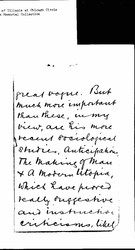 of Illinois at Chicago Circle
Memorial Collection
great vogue. But
much more important
than these, in my
view, are his more
recent sociological
studies, Anticipations,
The Making of Man
& A Modern Utopia,
which have proved
really suggestive
and instructive
criticisms, likely